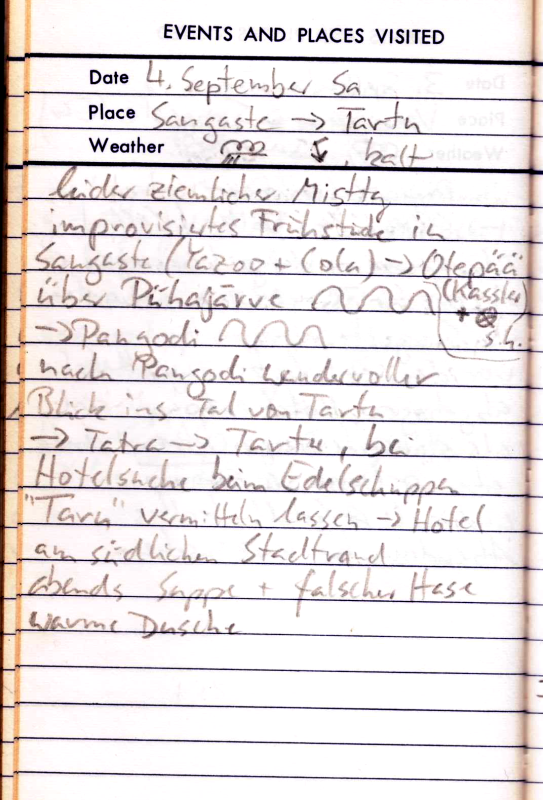 EVENTS AND PLACES VISITED
Date 4. September Sa
Place Sangaste → Tartu
Weather , kalt
leider ziemlicher Misttag
improvisiertes Frühstück in
Sangaste (Yazoo + Cola) → Otepää
über Pühajärve (Kassler
+ s.h.
→ Pangodi
nach Pangodi wundervoller
Blick ins Tal von Tartu
→ Tatra → Tartu, bei
Hotelsuche beim Edelschuppen
"Taru" vermitteln lassen → Hotel
am südlichen Stadtrand
abends Suppe + falscher Hase
warme Dusche